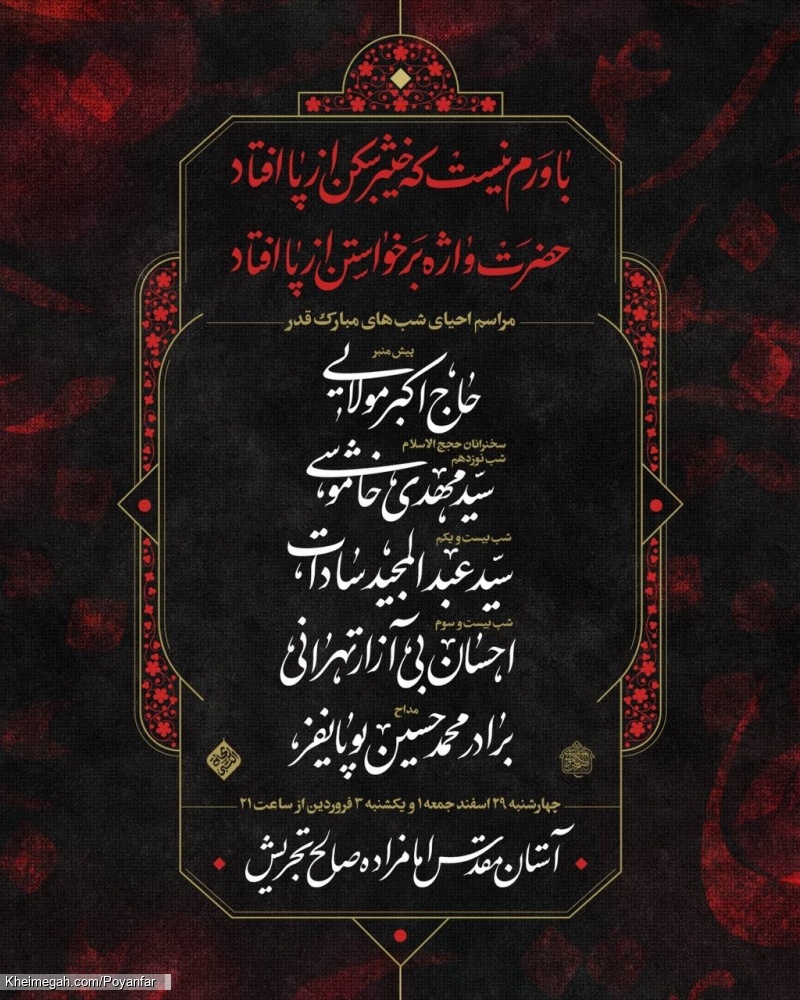 باورم نیست که خیبرشکن از پا افتاد
حضرت واژه برخواستن از پا افتاد
مراسم احیای شب های مبارک قدر
پیش منبر
حاج اکبر مولایی
سخنرانان حجج الاسلام
شب نوزدهم
سید مهدی خاموشی
شب بیست و یکم
سید عبدالمجید سادات
شب بیست و سوم
احسان بی آزار تهرانی
مداح
برادر محمد حسین پویانفر
چهارشنبه ۲۹ اسفند جمعه ۱ و یکشنبه ۳ فروردین از ساعت ۲۱
آستان مقدس امامزاده صالح تجریش
Kheimegah.com/Poyanfar